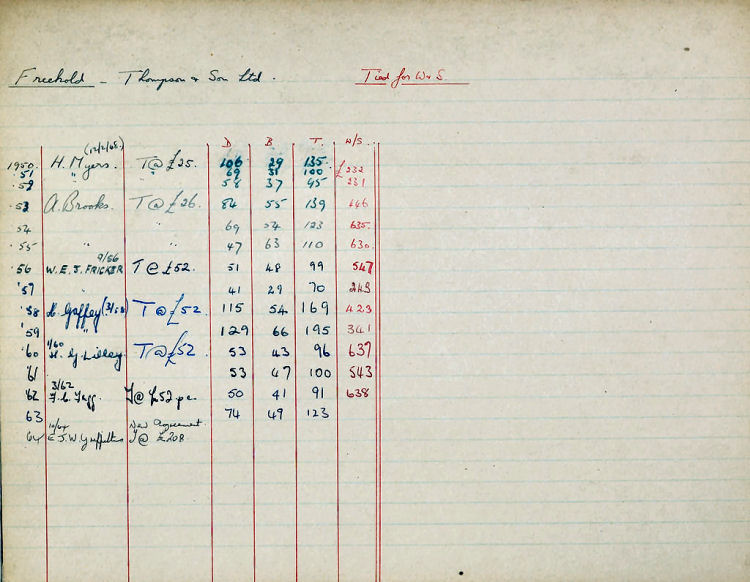 Freehold - Thompson & Son Ltd. Tied for W & S.
D B T. W/S.
(12/2/48.)
1950. H. Myers. T@ £25. 106 29 135
'51 " " 69 31 100 £232
'52 58 37 95 231
'53 A. Brooks. T@ £26. 84 55 139 446
54 " 69 54 123 635.
'55 " " 47 63 110 630.
9/56
'56 W.E.J. FRICKER T@ £52. 51 48 99 547
'57 " 41 29 70 243
'58 Gaffey (3/58) T@ £52. 115 54 169 423
'59 " 129 66 195 341
1/60
'60 H. G. Lilley T@ £52 53 43 96 637
'61 53 47 100 543
3/62
'62 F. C. Fagg. T@ £52 pa. 50 41 91 638
63 74 49 123
10/64 New Agreement.
64 E.J.W. Griffiths T@ £208